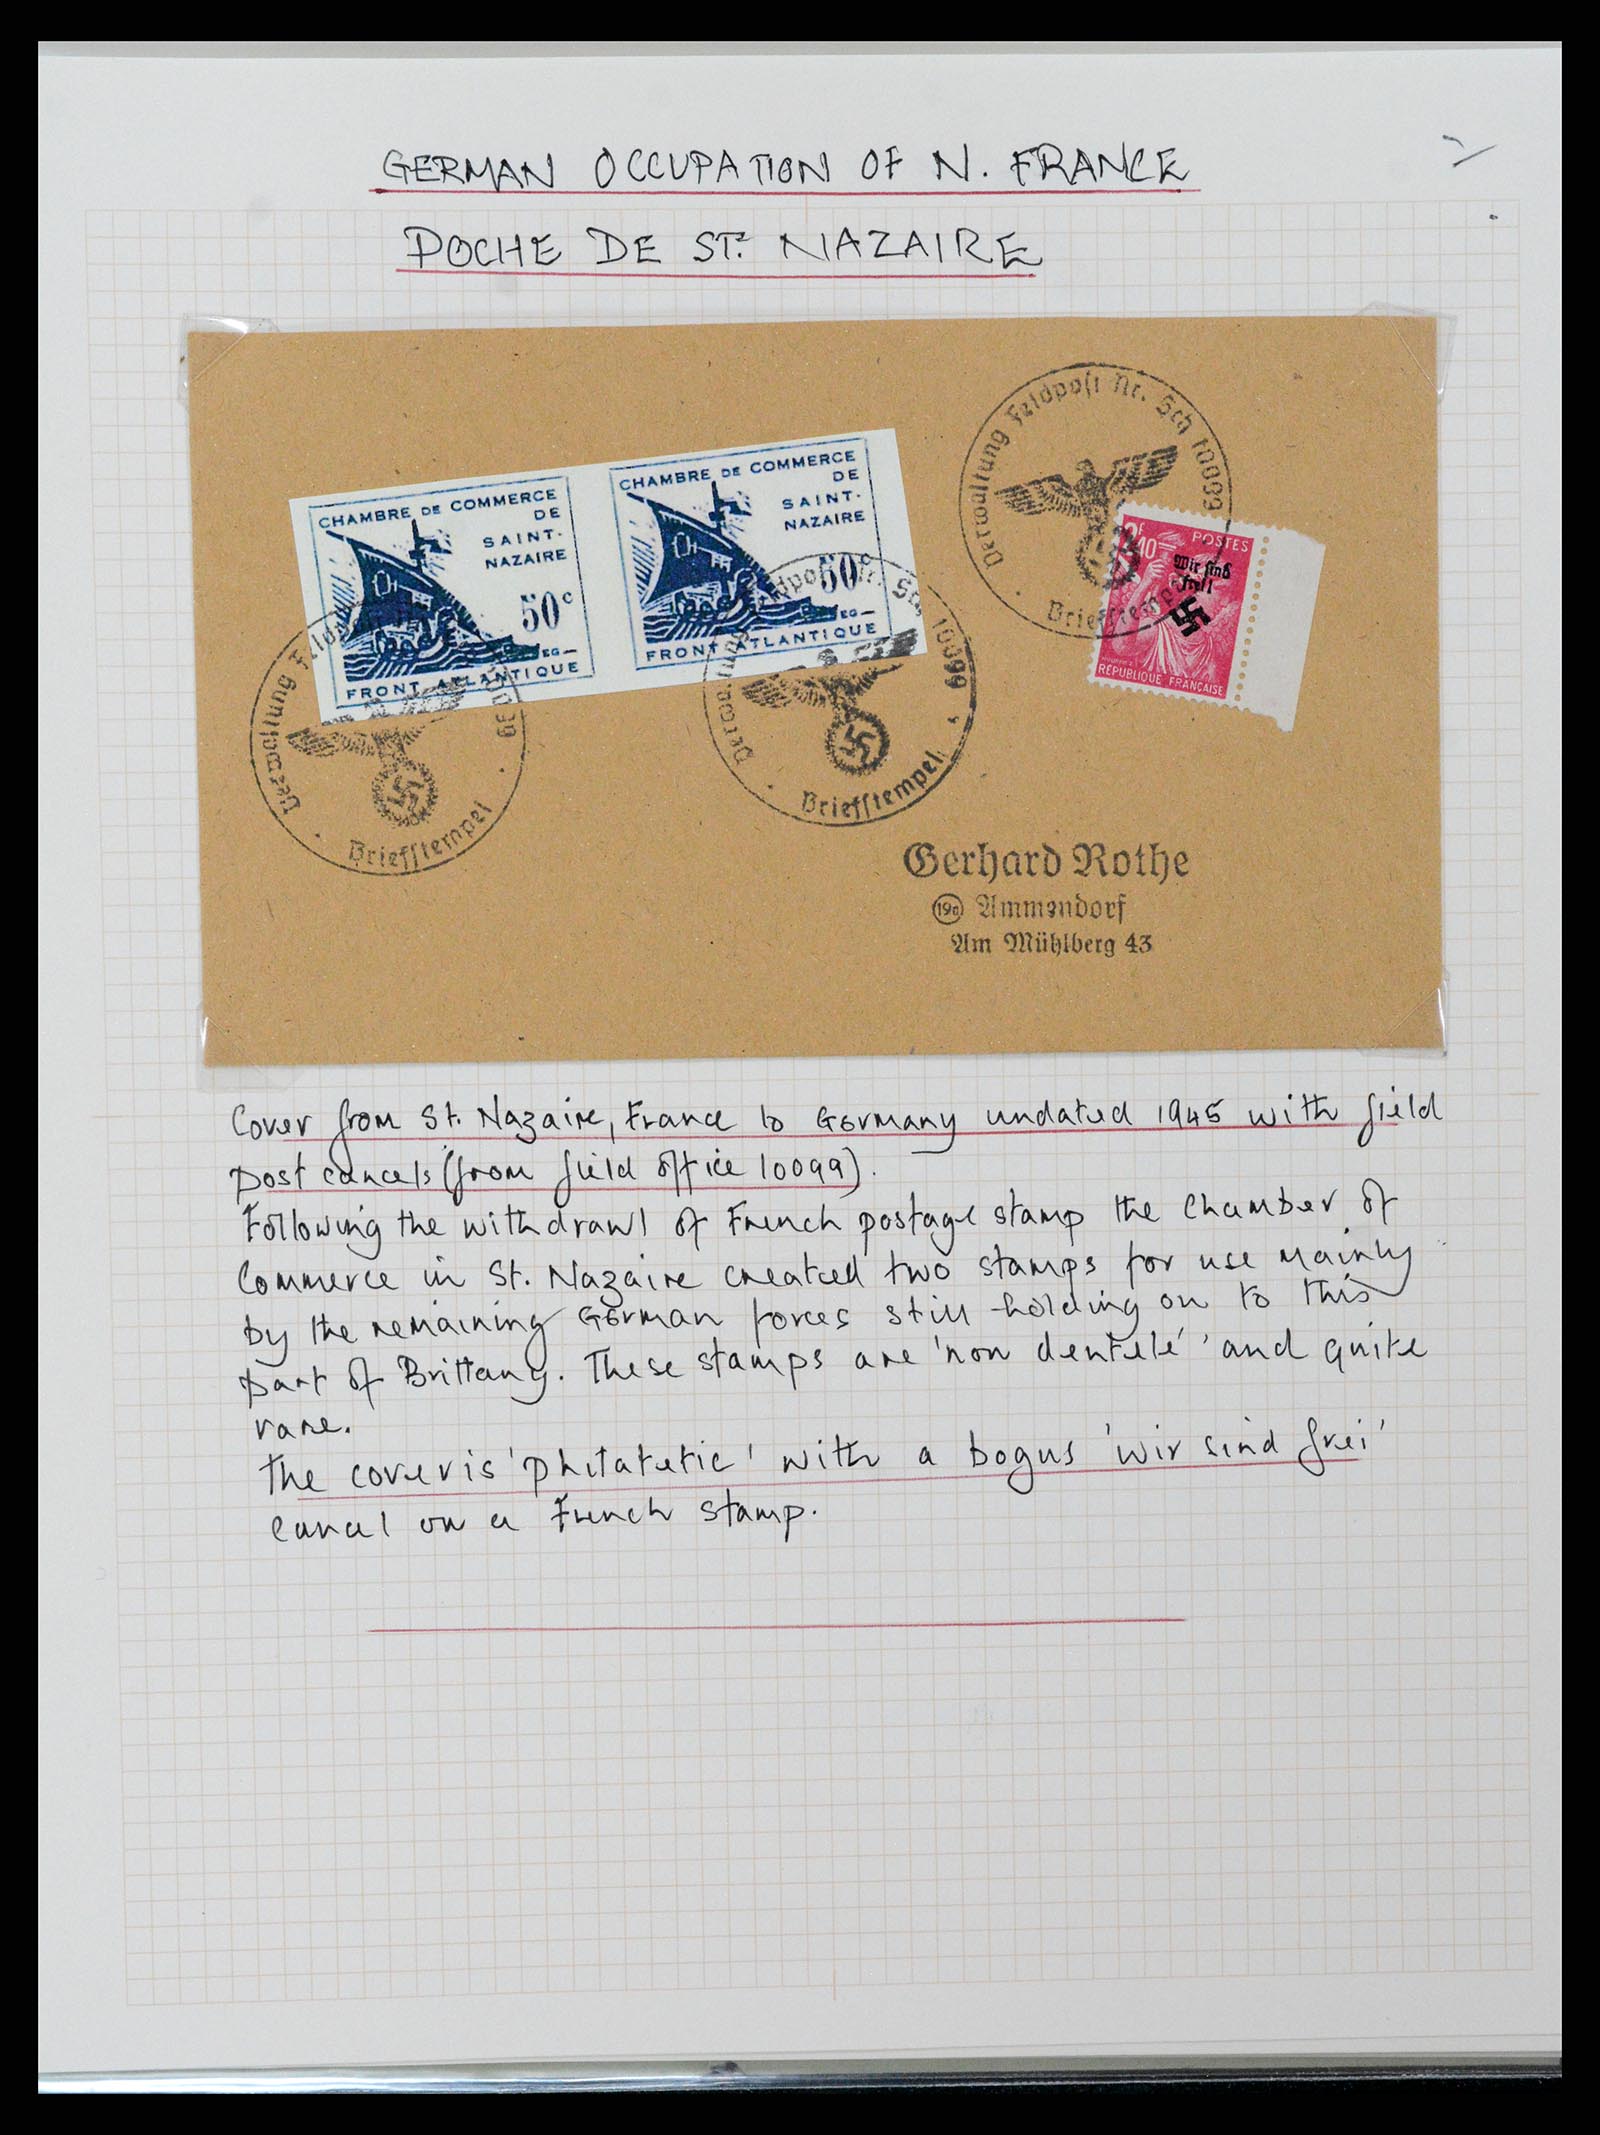 GERMAN OCCUPATION OF N. FRANCE
POCHE DE ST. NAZAIRE
CHAMBRE DE COMMERCE
DE
SAINT-
NAZAIRE
50c
EG
FRONT ATLANTIQUE
CHAMBRE DE COMMERCE
DE
SAINT-
NAZAIRE
50c
EG
FRONT ATLANTIQUE
Verwaltung Feldpost Nr. Sch 10099
Briefstempel
Verwaltung Feldpost Nr. Sch 10099
Briefstempel
Verwaltung Feldpost
Briefstempel
2F
40
POSTES
Wir sind
frei!
RÉPUBLIQUE FRANÇAISE
Gerhard Rothe
19a Ammendorf
Am Mühlberg 43
Cover from St. Nazaire, France to Germany undated 1945 with field
post cancels (from field office 10099).
Following the withdrawl of French postage stamp the Chamber of
Commerce in St. Nazaire created two stamps for use mainly
by the remaining German forces still holding on to this
part of Brittany. These stamps are 'non dentelé' and quite
rare.
The cover is 'philatetic' with a bogus 'wir sind frei'
cancel on a French stamp.